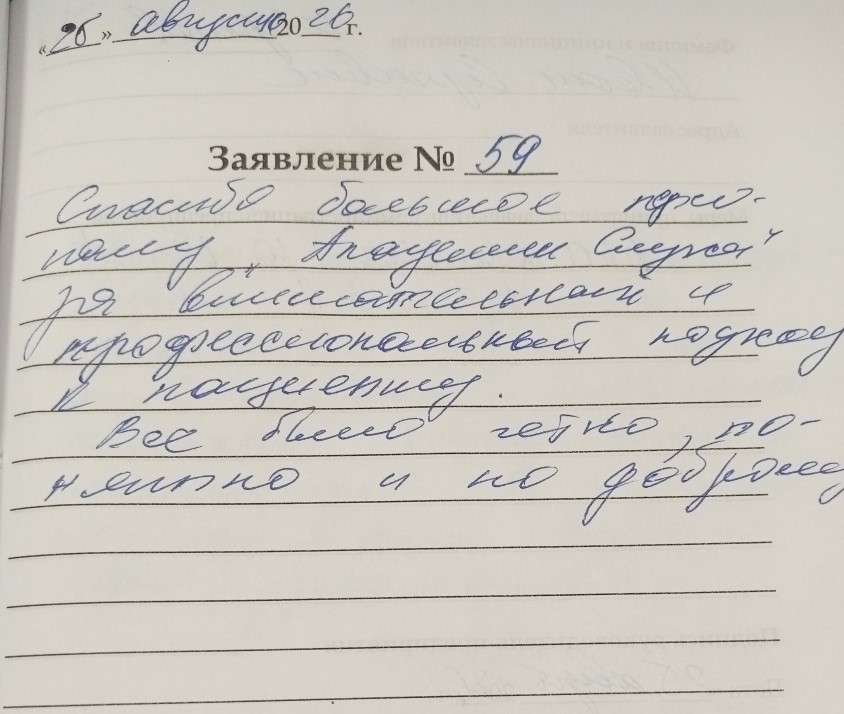 «26» августа 2026 г.
Заявление № 59
Спасибо большое персо-
налу "Академии Слуха"
за внимательный и
профессиональный подход
к пациенту.
Все было четко, по-
нятно и по доброму